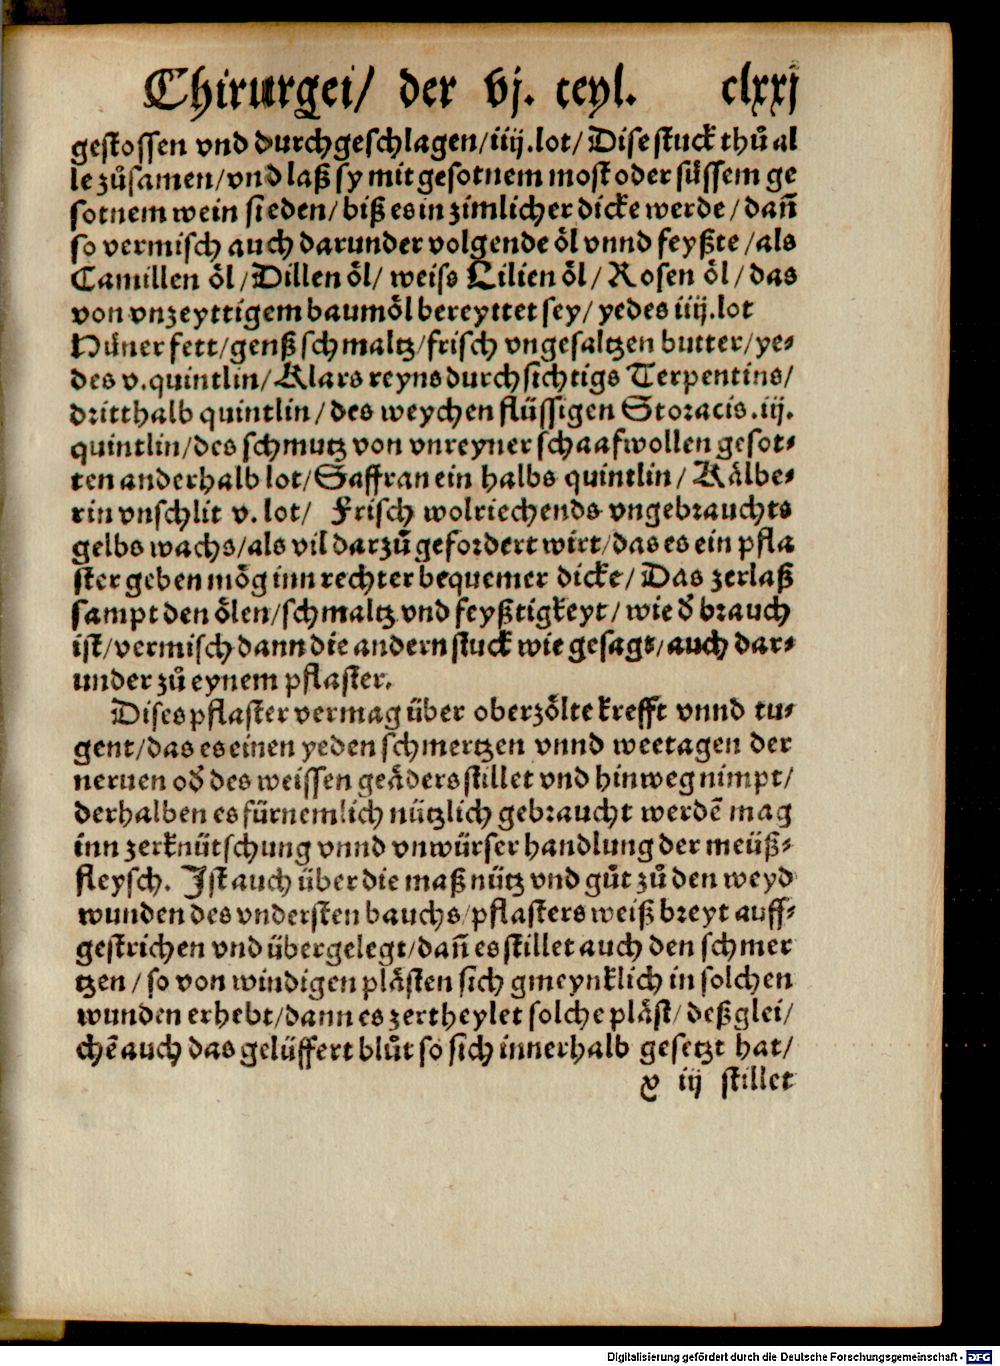 Chirurgei/ der vj. teyl. clxxj
gestossen vnd durchgeschlagen/iiij.lot/Dise stuck thuͦ al
le zuͦsamen/vnd laß sy mit gesotnem most oder süssem ge
sotnem wein sieden/ biß es in zimlicher dicke werde/dañ
so vermisch auch darunder volgende oͤl vnnd feyßte/als
Camillen oͤl/Dillen oͤl/ weiss Lilien oͤl/ Rosen oͤl/das
von vnzeyttigem baumoͤl bereyttet sey/ yedes iiij.lot
Huͤner fett/genß schmaltz/frisch vngesaltzen butter/ye⸗
des v.quintlin/Klars reyns durchsichtigs Terpentins/
dritthalb quintlin/des weychen flüssigen Storacis.iij.
quintlin/des schmutz von vnreyner schaafwollen gesot⸗
ten anderhalb lot/Saffran ein halbs quintlin/ Kaͤlbe⸗
rin vnschlit v. lot/ Frisch wolriechends vngebrauchts
gelbs wachs/als vil darzuͦ gefordert wirt/das es ein pfla
ster geben moͤg inn rechter bequemer dicke/ Das zerlaß
sampt den oͤlen/schmaltz vnd feyßtigkeyt/ wie d̕ brauch
ist/vermisch dann die andern stuck wie gesagt/auch dar⸗
under zuͦ eynem pflaster.
Dises pflaster vermag über oberzoͤlte krefft vnnd tu⸗
gent/das es einen yeden schmertzen vnnd weetagen der
neruen od̕ des weissen geaͤders stillet vnd hinweg nimpt/
derhalben es fürnemlich nützlich gebraucht werdẽ mag
inn zerknütschung vnnd vnwürser handlung der meüß⸗
fleysch. Ist auch über die maß nütz vnd guͦt zuͦ den weyd
wunden des vndersten bauchs/pflasters weiß breyt auff⸗
gestrichen vnd übergelegt/dañ es stillet auch den schmer
tzen/ so von windigen plaͤsten sich gmeynklich in solchen
wunden erhebt/dann es zertheylet solche plaͤst/ deßglei/
chẽ auch das gelüffert bluͦt so sich innerhalb gesetzt hat/
y iij stillet
Digitalisierung gefördert durch die Deutsche Forschungsgemeinschaft - DFG